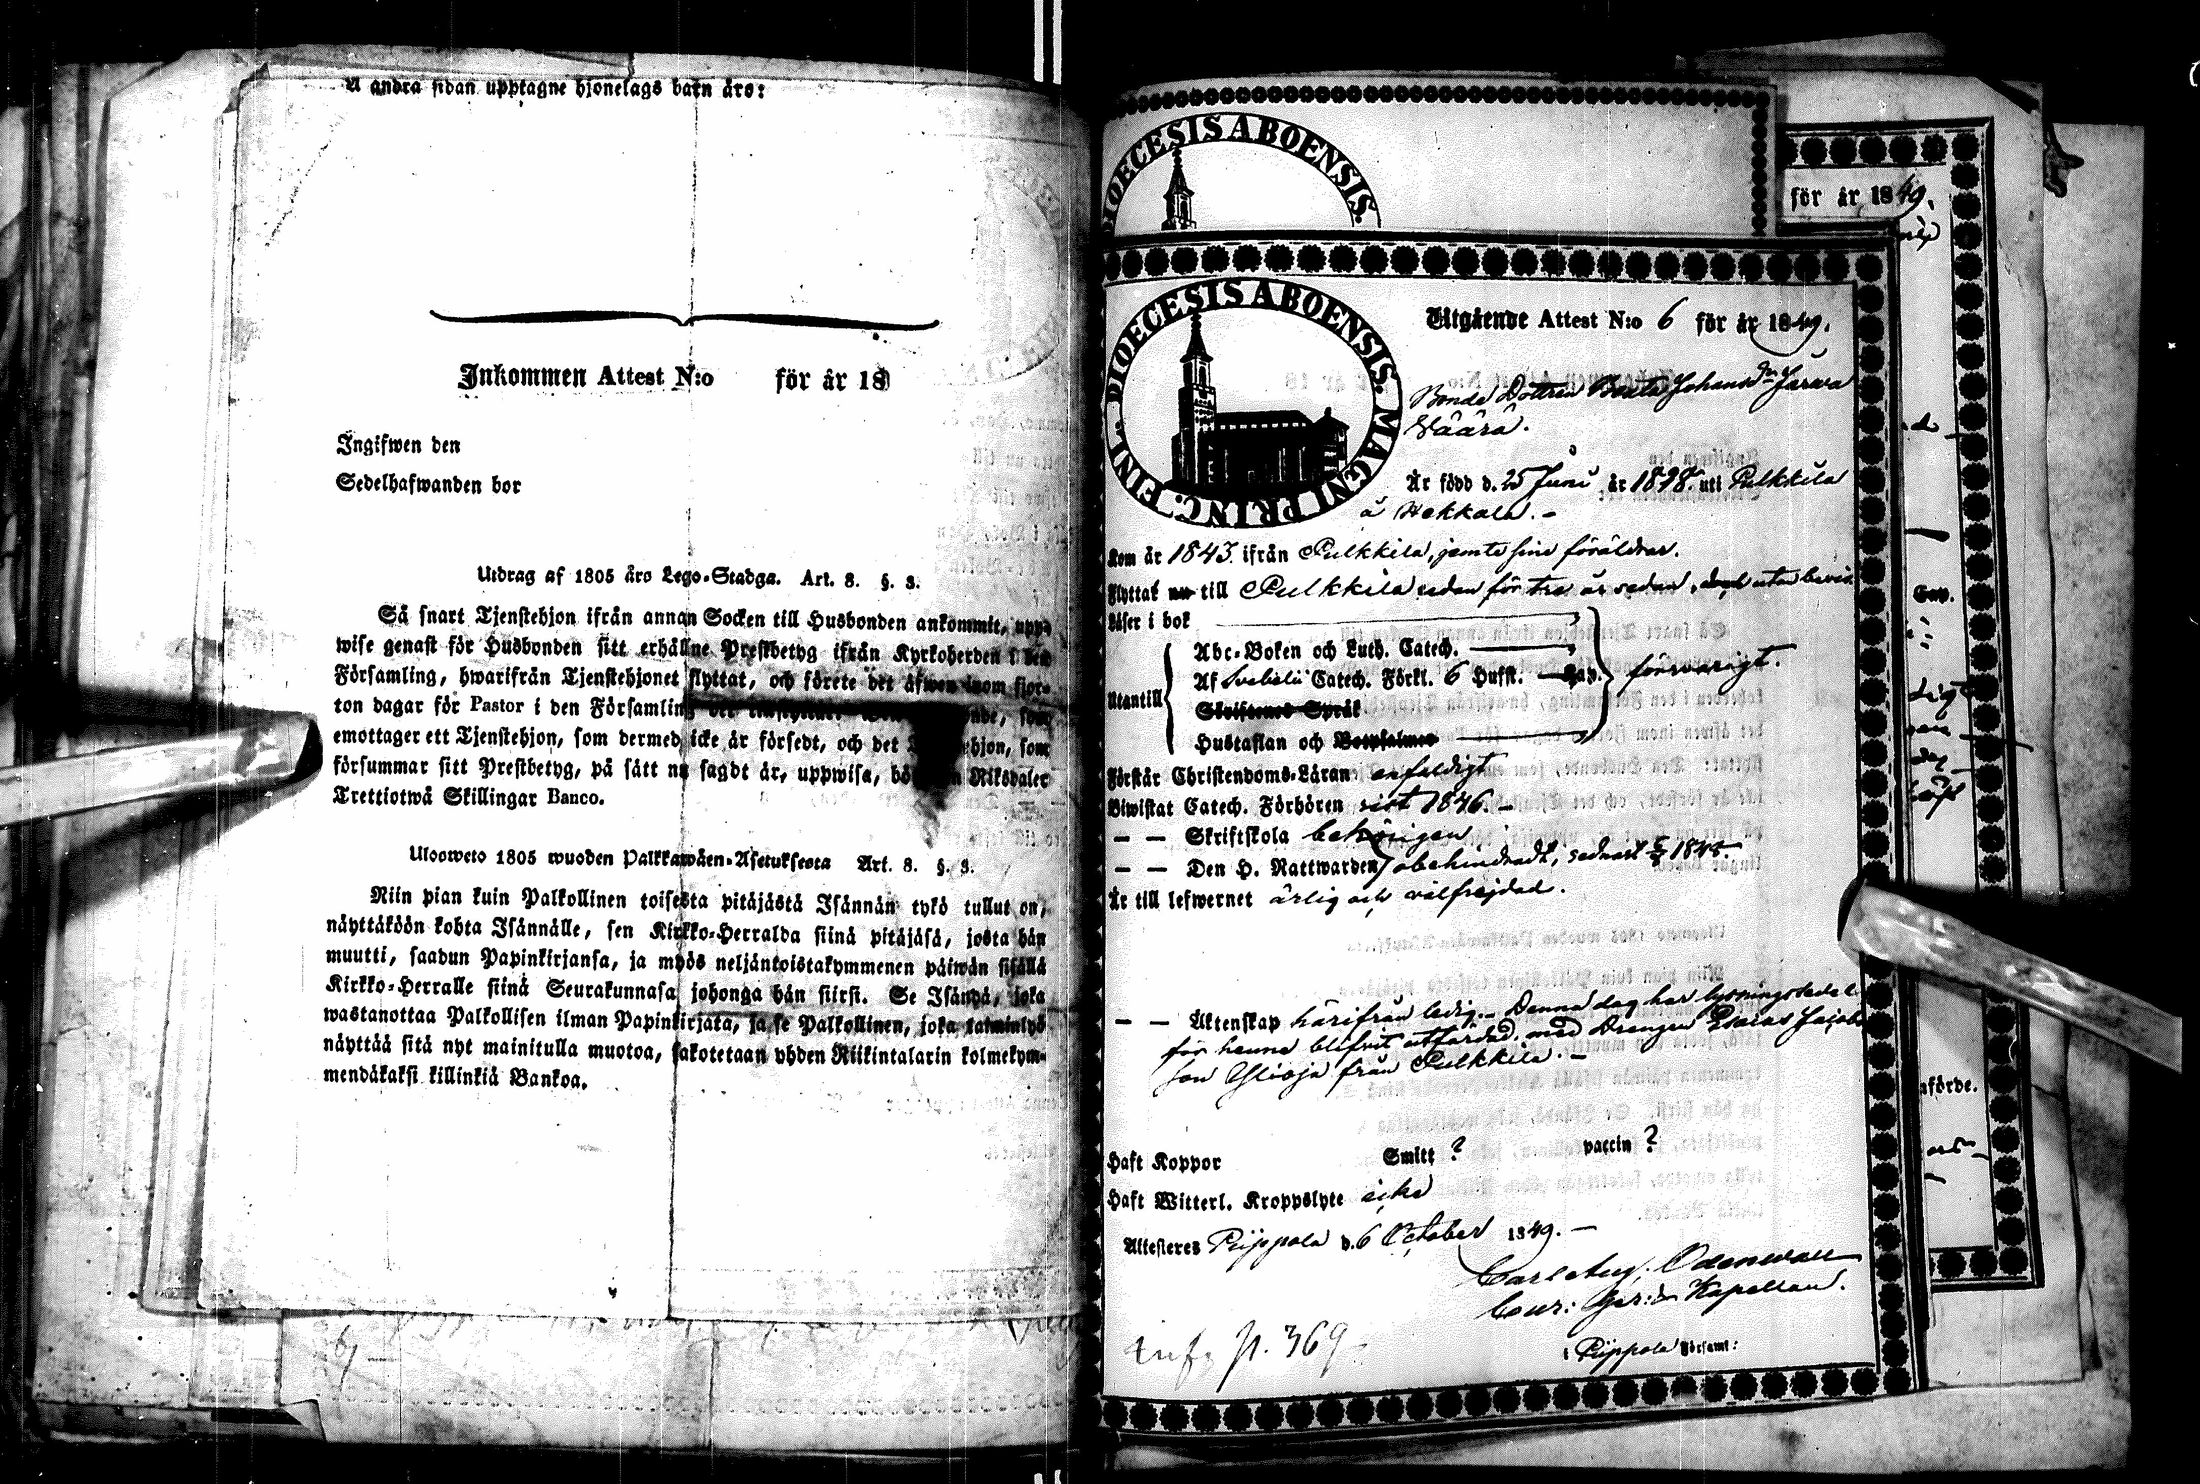 å andra sidan upptagne hjonelags barn äro:
Inkommen Attest N:o för år 18
Ingifwen den
Sedelhafwanden bor
Utdrag af 1805 års Lego-Stadga. Art. 8. §. 3.
Så snart Tjenstehjon ifrån annan Socken till Husbonden ankommit, upp-
wise genast för Husbonden sitt erhållne Prestbetyg ifrån Kyrkoherden i den
Församling, hwarifrån Tjenstehjonet flyttat, och förete det äfwen inom fjor-
ton dagar för Pastor i den Församling
emottager ett Tjenstehjon, som dermed icke är försedt, och det Tjenstehjon, som
försummar sitt Prestbetyg, på sätt nu sagdt är, uppwisa, böte en Riksdaler
Trettiotwå Skillingar Banco.
Uloosweto 1805 wuoden Palkkawäen-Asetuksesta Art. 8. §. 3.
Niin pian kuin Palkollinen toisesta pitäjästä Isännän tykö tullut on,
näyttäköön kohta Isännälle, sen Kirkko-Herralda siinä pitäjäsä, josta hän
muutti, saadun Papinkirjansa, ja myös neljäntoistakymmenen päiwän sisällä
Kirkko-Herralle siinä Seurakunnasa johonga hän siirsi. Se Isändä, joka
wastanottaa Palkollisen ilman Papinkirjata, ja se Palkollinen, joka laiminlyö
näyttää sitä nyt mainitulla muotoa, sakotetaan yhden Riikintalarin kolmekym-
mendäkaksi killinkiä Bankoa.
DIOECESIS ABOENSIS.
för år 1849.
DIOECESIS ABOENSIS. MAGNI PRINC. FINL.
Utgående Attest N:o 6 för år 1849.
Bonde Dottren Beata Johansdr Järwa
Wäärä.
Är född d. 25 Juni år 1828 uti Pulkkila
å Wekkala.-
Kom år 1843 ifrån Pulkkila, jemte sine föräldrar.
Flyttat nu till Pulkkila redan för tre år sedan, dock utan bevis
Läser i bok
Abc-Boken och Luth. Catech.
Utantill Af Svebelii Catech. Förkl. 6 Hufst. försvarligt.
Skriftenes Språk
Hustaflan och Botpsalmer
Förstår Christendoms-Läran enfaldigt
Biwistat Catech. Förhören sist 1846.-
— — Skriftskola behörigen
— — Den H. Nattwarden obehindradt, sednast 1845.
Är till lefwernet ärlig och välfrejdad.
— — Äktenskap härifrån ledig.- Denna dag har lysningssedel
för henne blifvit utfärdad, med Drengen Esaias Jacobs
son Ylioja från Pulkkila.-
Haft Koppor Smitt ? vaccin ?
Haft Witterl. Kroppslyte icke
Attesteres Piippola d. 6 October 1849.-
Carl Aug. Odenwall
Cour: Ger: d. Kapellan.
i Piippola Församl:
inf. p. 369